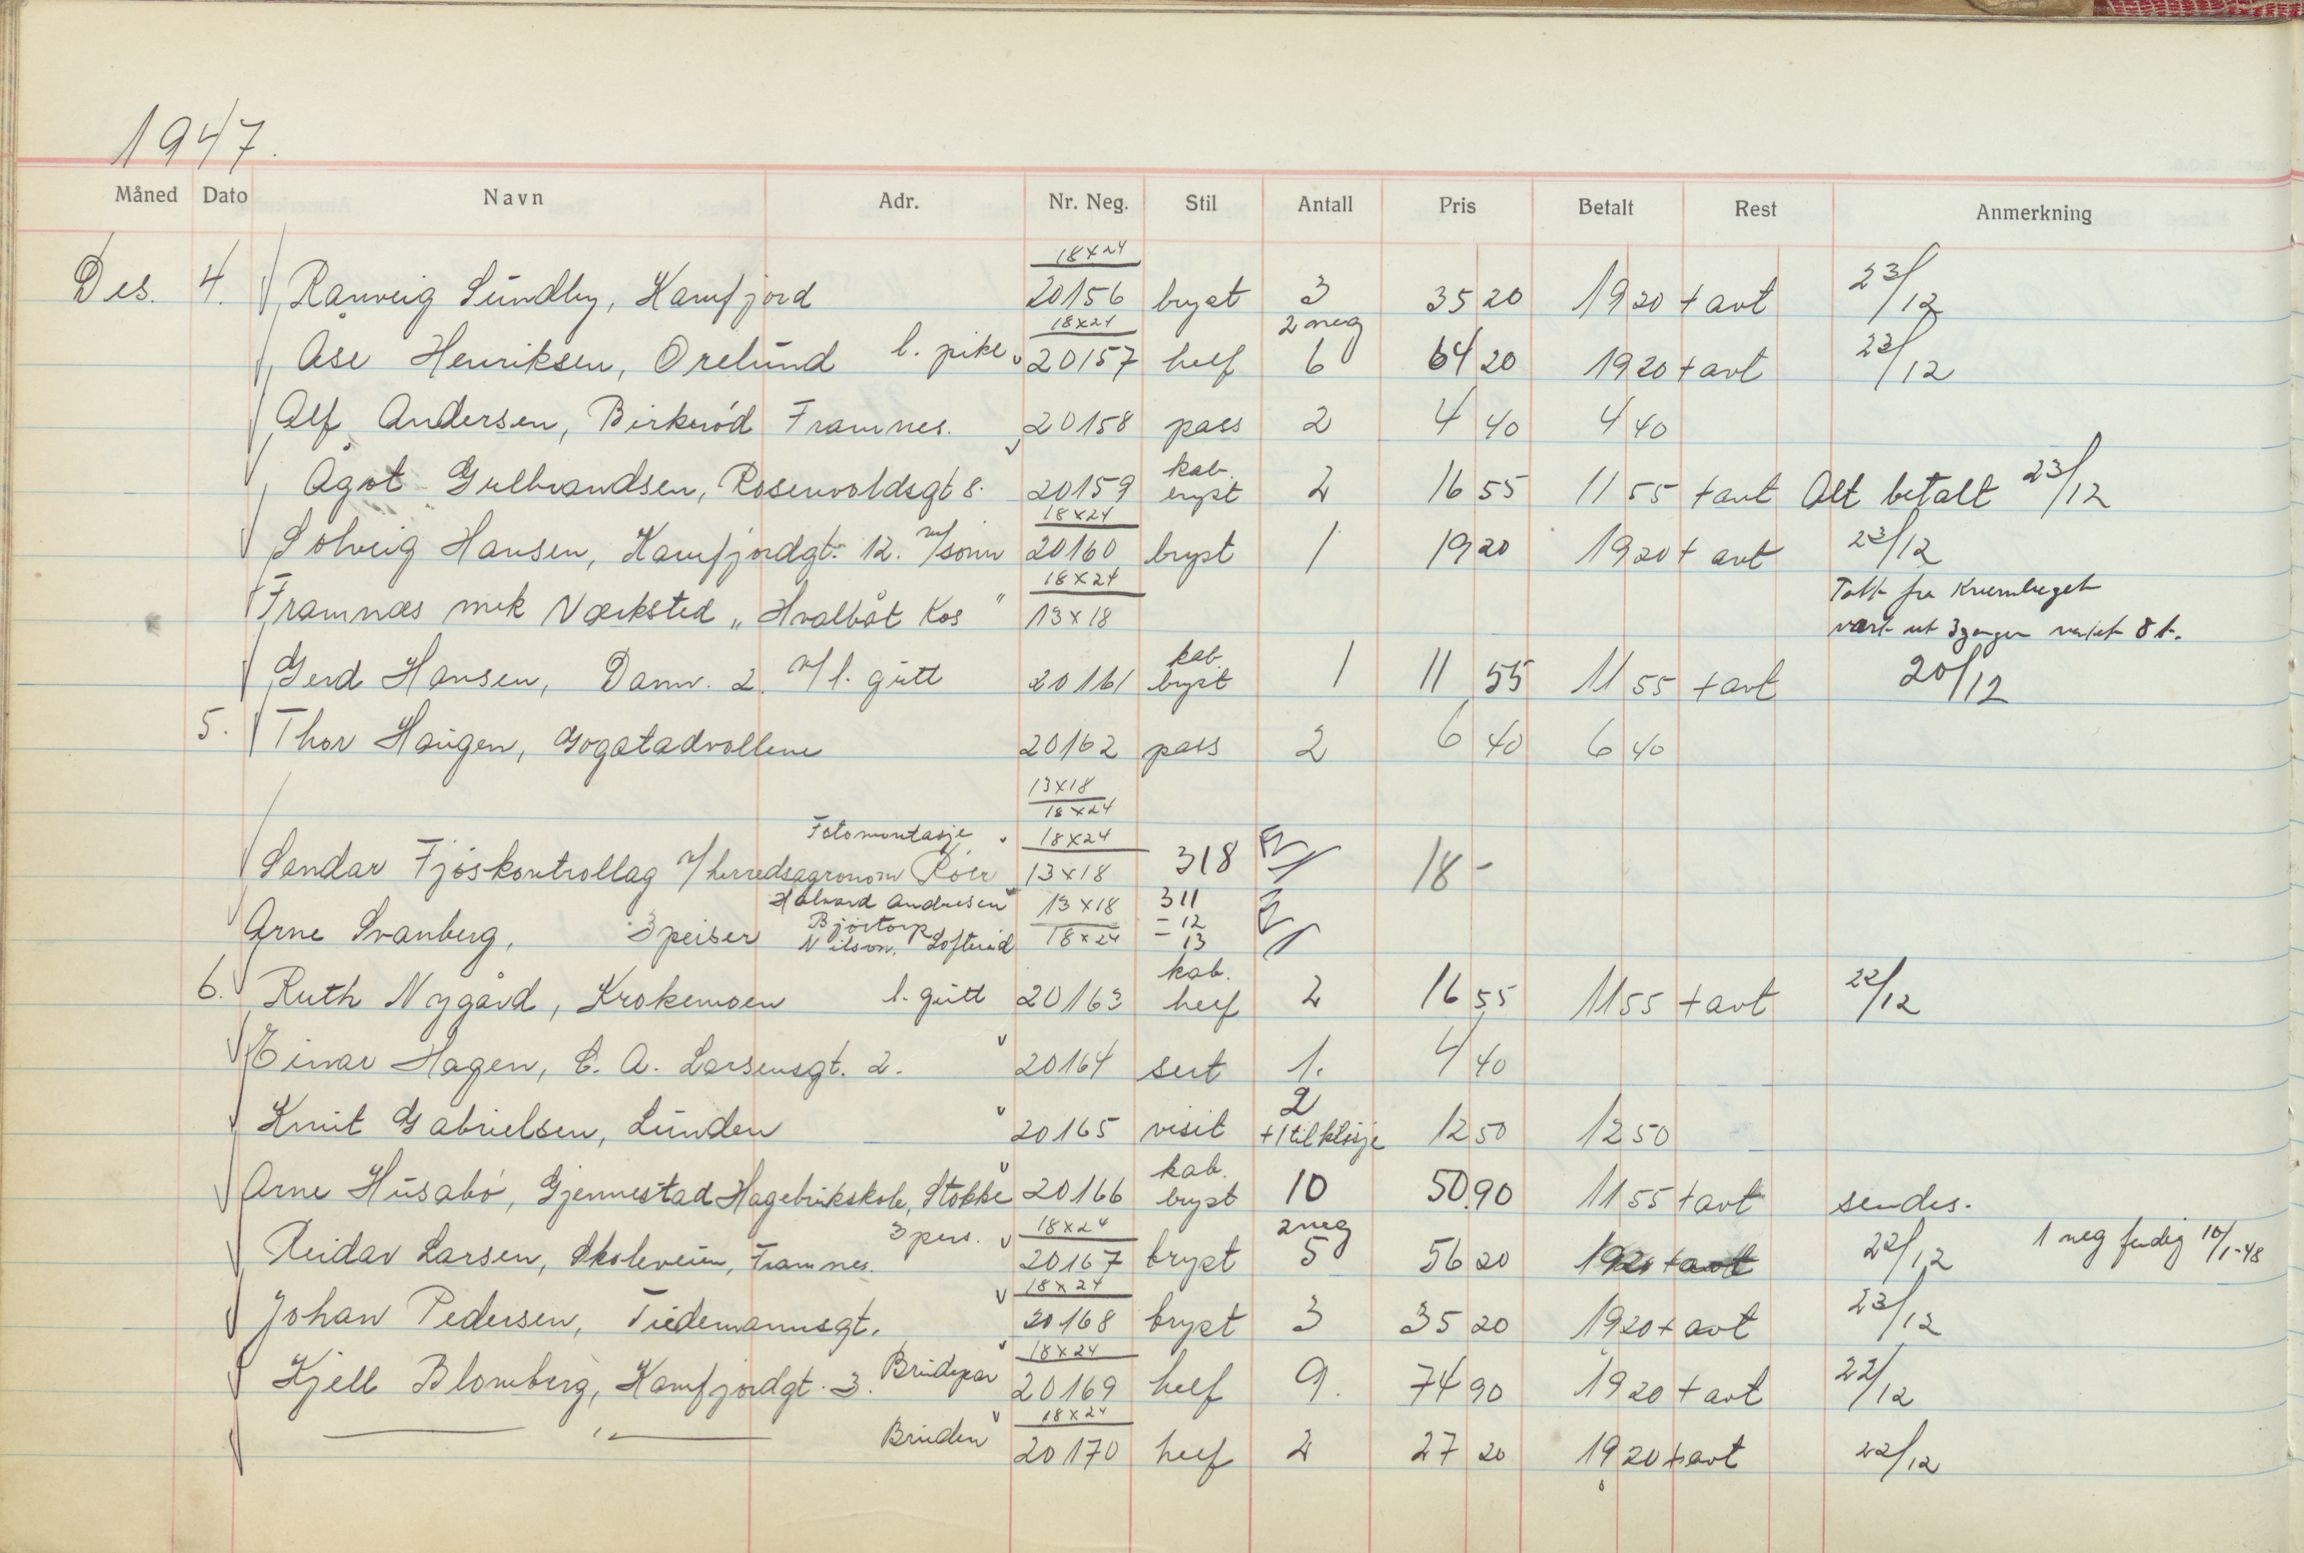 1947.
Måned Dato Navn Adr. Nr. Neg. Stil Antall Pris Betalt Rest Anmerkning
18x24
Des. 4. Ranveig Sundby, Kamfjord 20156 bryst 3 35 20 19 20 + avt 23/12
18x24 2 neg
Åse Henriksen, Orelund l. pike 20157 helf 6 64 20 19 20 + avt 23/12
Alf Andersen, Birkerød Framnes. 20158 pass 2 4 40 4 40
kab.
Ågot Gulbrandsen, Rosenvoldsgt 8. 20159 bryst 2 16 55 11 55 + avt Alt betalt 23/12
18x24
Solveig Hansen, Kamfjordgt. 12. m/sønn 20160 bryst 1 19 20 19 20 + avt 23/12
18x24
Framnæs mek Værksted „Hvalbåt Kos" 13x18
vært ut 3 ganger
kab.
Gerd Hansen, Damv. 2. m/ l. gutt 20161 bryst 1 11 55 11 55 + avt 20/12
5. Thor Haugen, Gogstadvollene 20162 pass 2 6 40 6 40
13x18
18x24
Fotomontasje 18x24
Sandar Fjøskontrollag v/ herredsagronom Röer 13x18 318 18 -
Halvard Andresen 13x18 311
Bjørtorp - 12
Arne Svanberg, 3 peiser 18x24 - 13
Nilson, Lofterød
kab.
6. Ruth Nygård, Krokemoen l. gutt 20163 helf 2 16 55 11 55 + avt 22/12
Einar Hagen, C. A. Larsensgt. 2. 20164 sert 1. 4 40
2
Knut Gabrielsen, Lunden 20165 visit + 1 til klisje 12 50 12 50
kab.
Arne Husabø, Gjennestad Hagebrukskole, Stokke 20166 bryst 10 50.90 11 55 + avt sendes.
3 pers. 18x24 2 neg
Reidar Larsen, Skoleveien, Framnes. 20167 bryst 5 56 20 19 20 + avt 22/12 1 neg ferdig 10/1-48
18x24
Johan Pedersen, Tiedemannsgt. 20168 bryst 3 35 20 19 20 + avt 23/12
18x24
Kjell Blomberg, Kamfjordgt. 3. Brudepar 20169 helf 9. 74 90 19 20 + avt 22/12
18x24
— " — Bruden 20170 helf 2 27 20 19 20 + avt 22/12